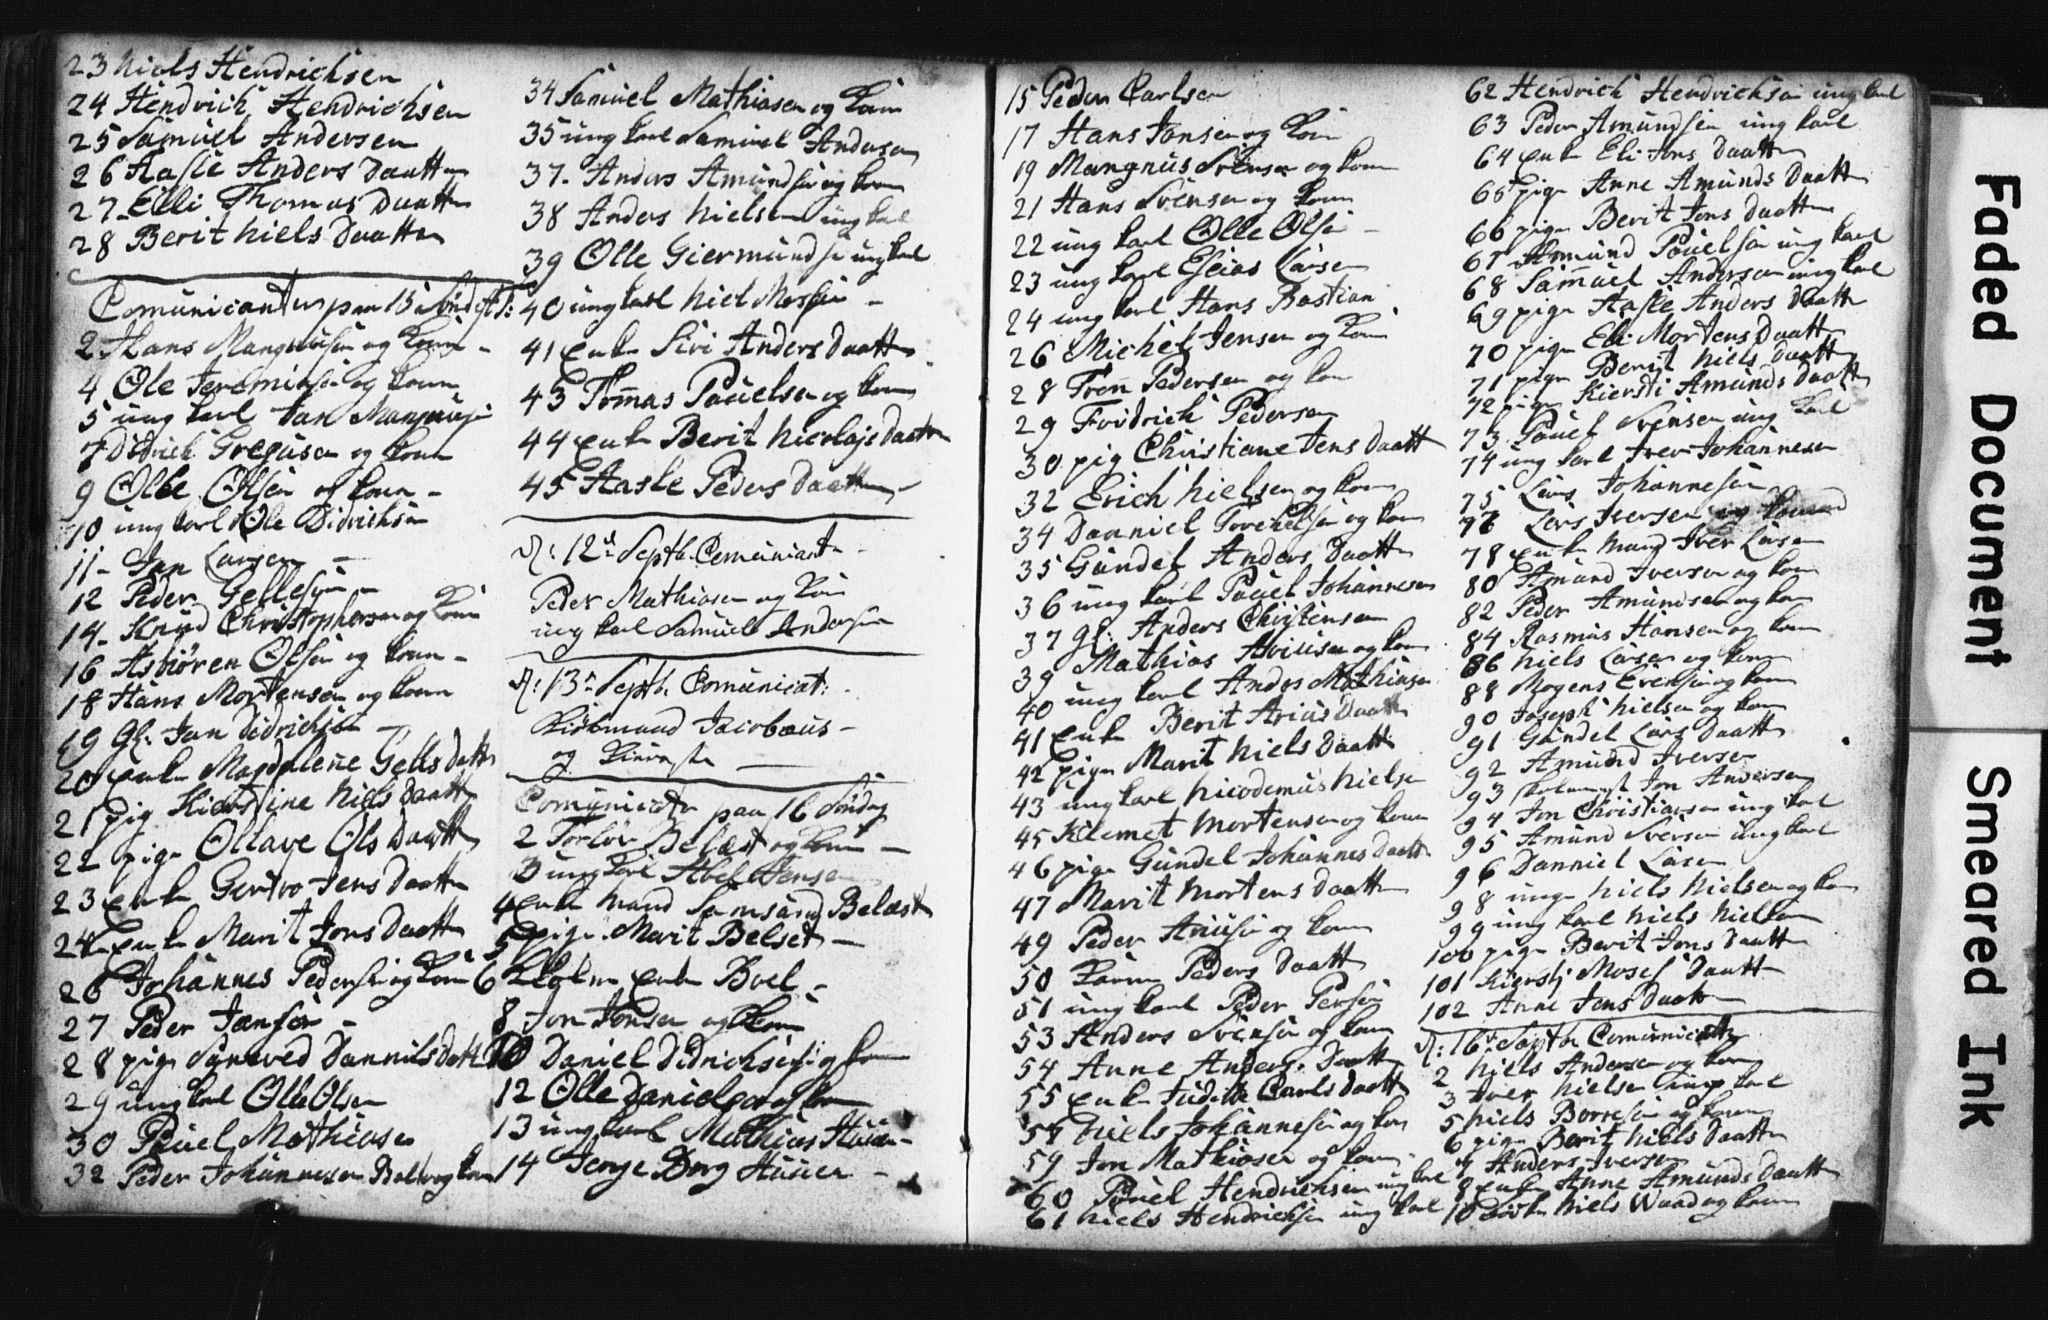 23 Niels Hendrichsen
24 Hendrich Hendrichsen
25 Samuel Andersen
26 Aasle Anders Daatt
27 Elli Thomas Daatt
28 Berit Niels Daatt
Comunicanter paa 15
2 Hans og Kone
4 Ole Jeremiasen og kone
5 ung karl Jan
7 Didrich Gregusen og kone
9 Olle Olsen og kone
10 ung karl Ole Didrichsen
11 Jan Larsen
12 Peder
14 Knud Christophersen og Kone
16 Asbiören Olsen og kone
18 Hans Mortensen og kone
19 Gl. Jan Didrichsen
20 enke Magdalene Gells Datt
21 pig Kierstine Niels Daatt
22 pige Oltave Ols Daatt
23 enke Gertro Jens Daatt
24 enke Marit Jons Daatt
26 Johannes Pedersen og Kone
27 Peder Jansen
28 pige Sÿneved Dannils Datt
29 ung karl Olle Olsen
30 Pouel Mathiasen
32 Peder Johannesen og kone
34 Samuel Mathiasen og Kone
35 ung karl Samuel Andersen
37 Anders Amundsen og kone
38 Anders Nielsen ung karl
39 Olle Giermundsen ung karl
40 ung karl Niel
41 enke Siri Anders Daatt
43 Tomas Pouelsen og kone
44 enke Berit Nicolajs Daatt
45 Aasle Peders Daatt
d: 12 Septb. Comuniant
Peder Mathiasen og Kone
ung karl Samuel Andersen
d: 13 Septb. Comunicat:
Jacobæus
og
Comunicater paa 16 Sondag
2 Torlöv Belæst og Kone
3 ung karl Abel Jensen
4 enke mand Belæst
5 pige Marit Belset
6 enke Boel
8 Jon Jonsen og Kone
10 Daniel Didrichsen og kone
12 Olle Danielsen og kone
13 ung karl Mathias
14
15 Peder Carlsen
17 Hans Jonsen og Kone
19 Mangnus Svensen og kone
21 Hans Svensen og kone
22 ung karl Olle Olsen
23 ung karl Eseias Larsen
24 ung karl Hans Bastian
26 Michel Jensen og Kone
28 Tron Pedersen og kone
29 Fridrich Pedersen
30 pig Christiane Jens Daatt
32 Erich Nielsen og kone
34 Danniel og kone
35 Gundel Anders Daatt
36 ung karl Pouel Johannesen
37 gl: Anders Christensen
39 Mathias Ariusen og kone
40 ung karl Anders Mathiasen
41 enke Berit Arius Daatt
42 pige Marit Niels Daatt
43 ung karl Nicodemus Nielsen
45 Klemet Mortensen og kone
46 pige Gundel Johannes Daatt
47 Marit Mortens Daatt
49 Peder Ariusen og kone
50 Karen Peders Daatt
51 ung karl Peder Persen
53 Anders Svensen og kone
54 Anne Anders Daatt
55 enke Judithe Carls Daatt
57 Niels Johannesen og kone
59 Jon Mathiasen og kone
60 Pouel Hendrichsen ung karl
61 Niels Hendrichsen ung karl
62 Hendrich Hendrichsen ung karl
63 Peder Amundsen ung karl
64 enke Eli Jons Daatt
65 pige Anne Amunds Daatt
66 pige Berit Jons Daatt
67 Amund Pouelsen ung karl
68 Samuel Andersen ung karl
69 pige Aasle Anders Daatt
70 pige Eli Mortens Daatt
71 pige Berit Niels Daatt
72 pige Kiersti Amunds Daatt
73 Pouel Svensen ung karl
74 ung karl Iver Johannesen
75 Lars Johannesen
77 Lars Iversen og
78 enke mand Iver Larsen
80 Amund Iversen og kone
82 Peder Amundsen og kone
84 Rasmus Hansen og kone
86 Niels Larsen og kone
88 Mogens Evensen og kone
90 Joseph Nielsen og kone
91 Gundel Lars Daatt
92 Amund Iversen
93 Jon Andersen
94 Jon Christiansen ung karl
95 Amund Iversen ung karl
96 Danniel Larsen
98 unge Niels Nielsen og kone
99 ung karl Niels Nielsen
100 pige Berit Jons Daatt
101 Kiersti Moses Daatt
102 Anne Jens Daatt
d: 16 Septb. Comunicatter
2 Niels Andersen og kone
3 Iver Nielsen ung karl
5 Niels Borresen og kone
6 pige Berit Niels Daatt
7 Anders Iversen
8 enke Anne Amunds Daatt
10 Niels Waad og kone
Faded Document
Smeared Ink